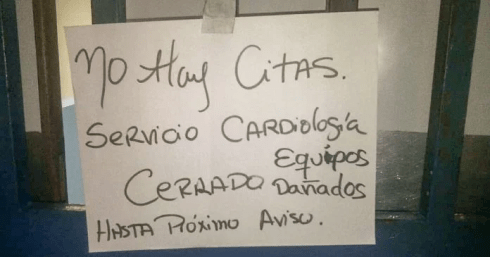 No Hay CitAS.
Servicio CARDiología
Equipos
CERRADO Dañados
HASTA Próximo Aviso.